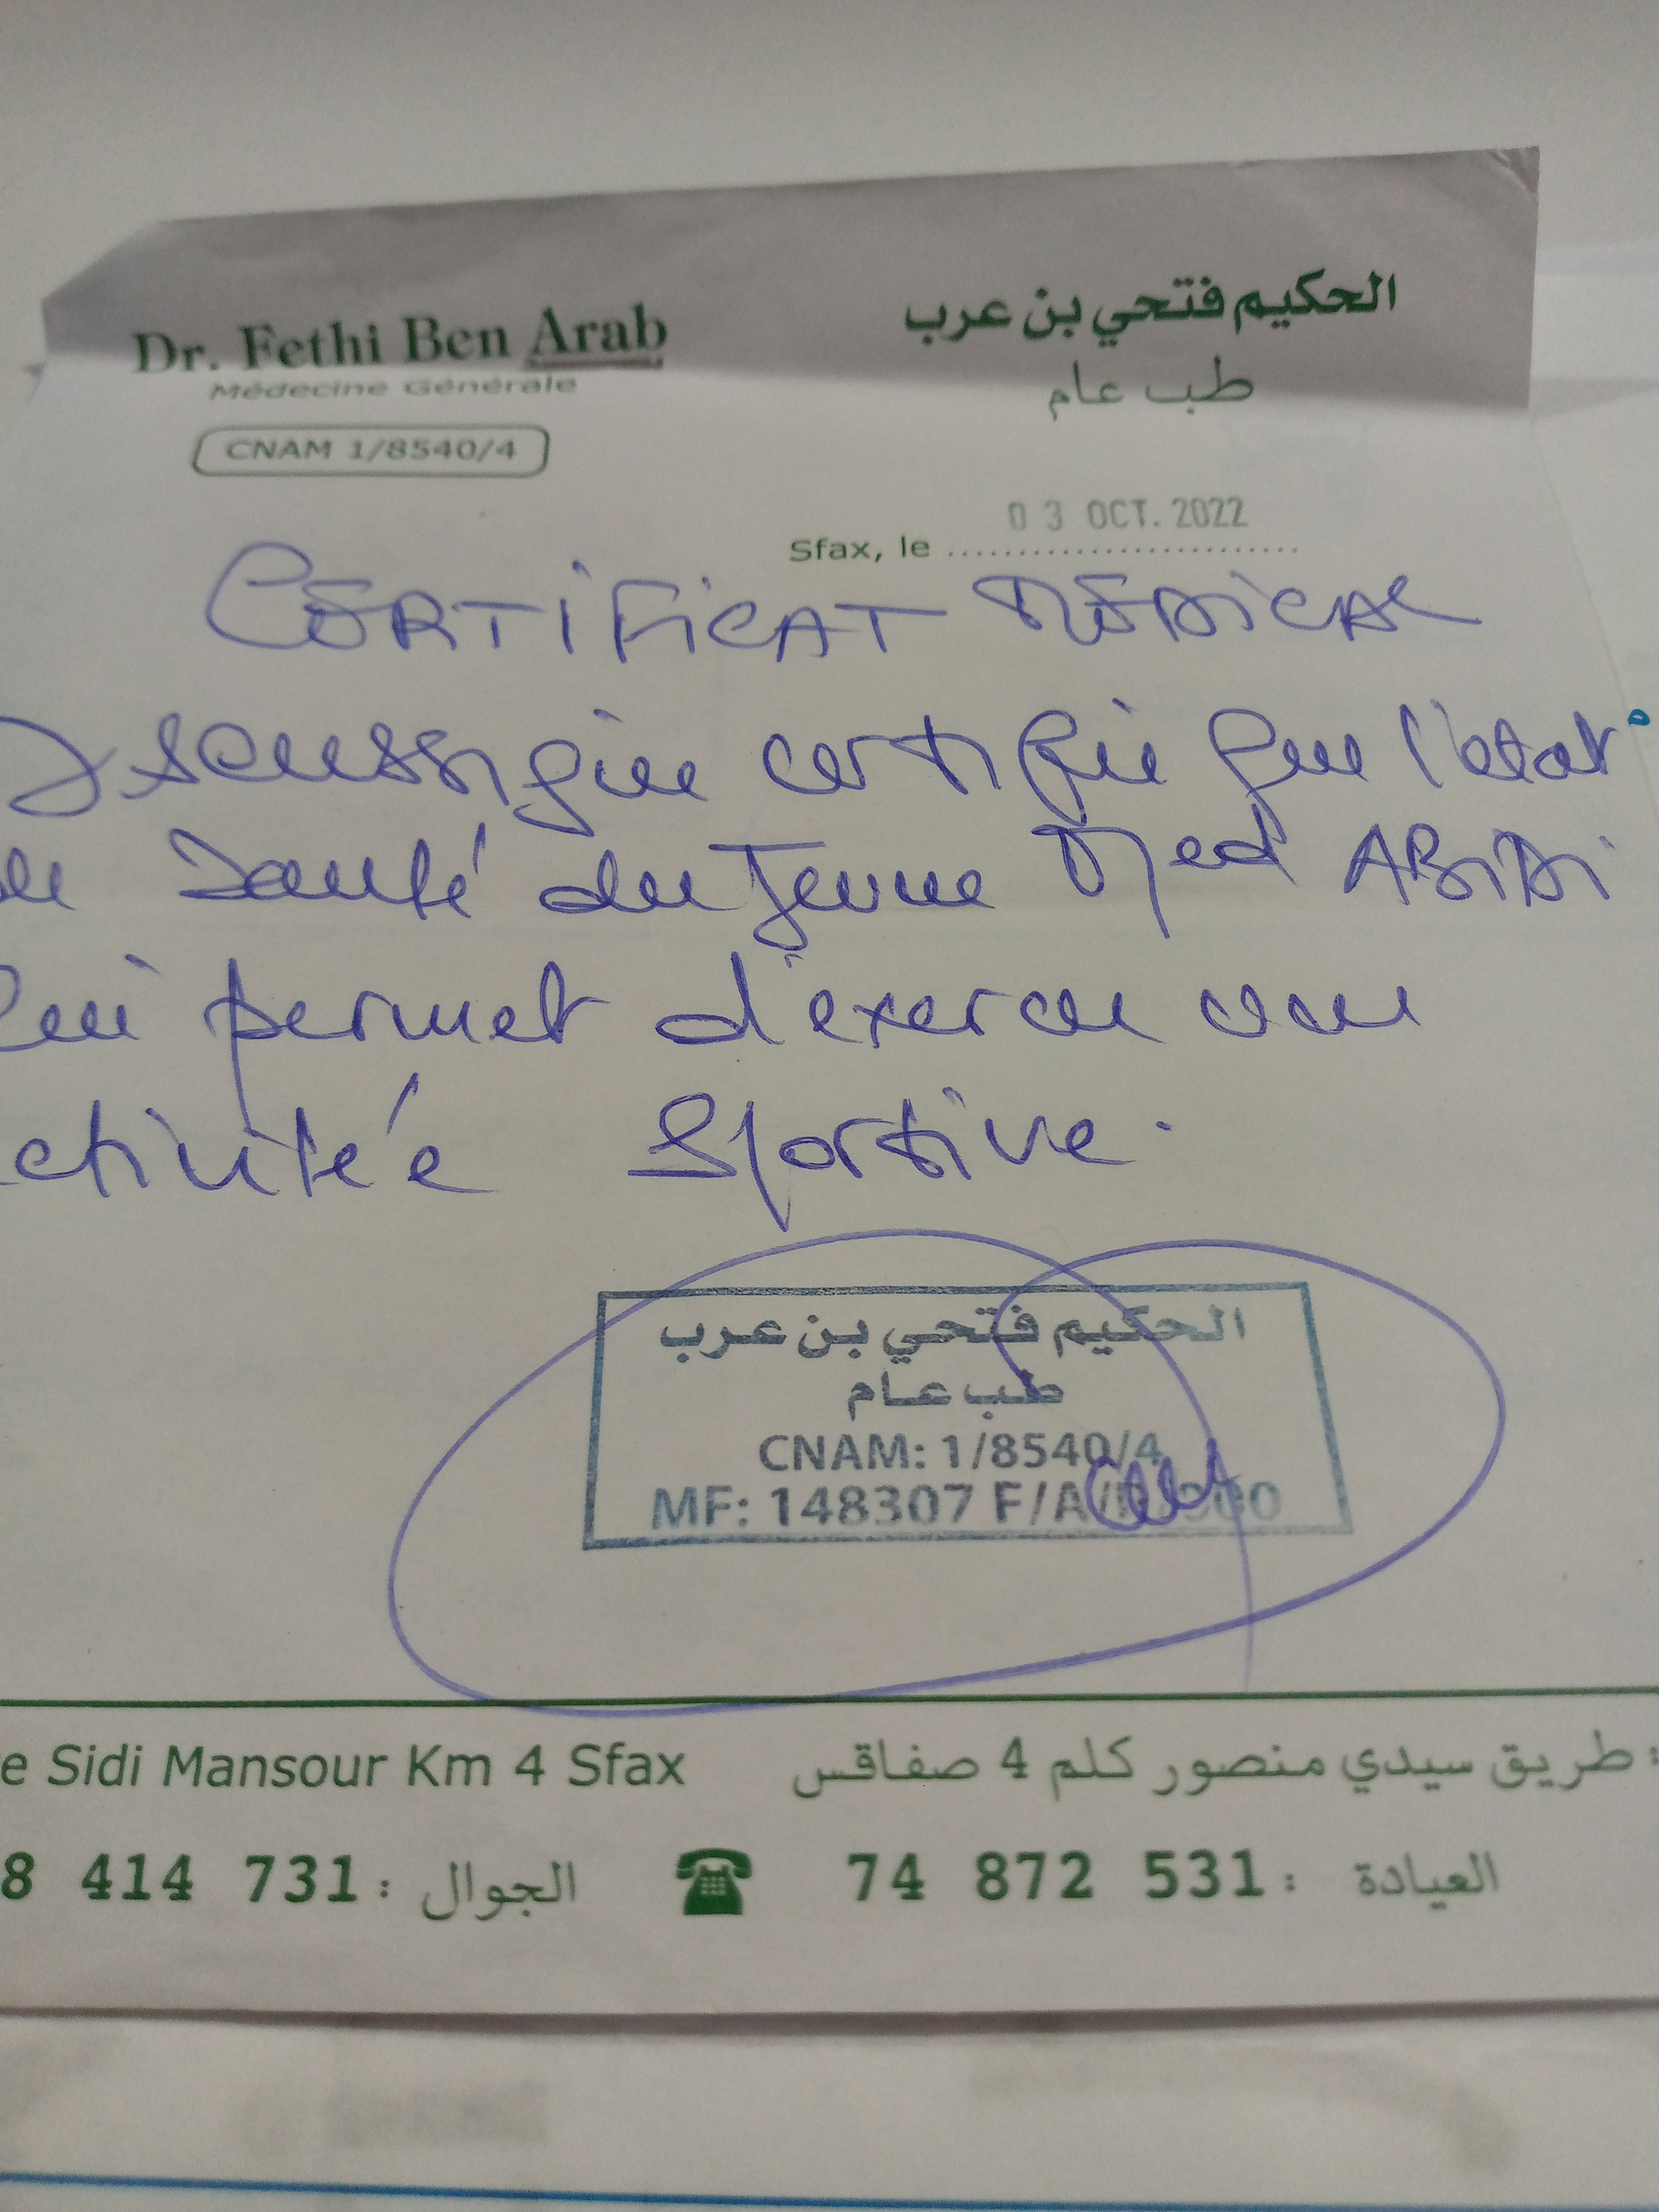 Dr. Fethi Ben Arab
Médecine Générale
CNAM 1/8540/4
الحكيم فتحي بن عرب
طب عام
Sfax, le 03 OCT. 2022
CERTIFICAT MEDICAL
soussigne certifie que l'etat
de Santé du Jeune Med ABiDi
lui permet d'exercer une
ctivitée Sportive.
الحكيم فتحي بن عرب
طب عام
CNAM: 1/8540/4
MF: 148307 F/A/ 000
e Sidi Mansour Km 4 Sfax
: طريق سيدي منصور كلم 4 صفاقس
8 414 731 : الجوال
74 872 531 : العيادة